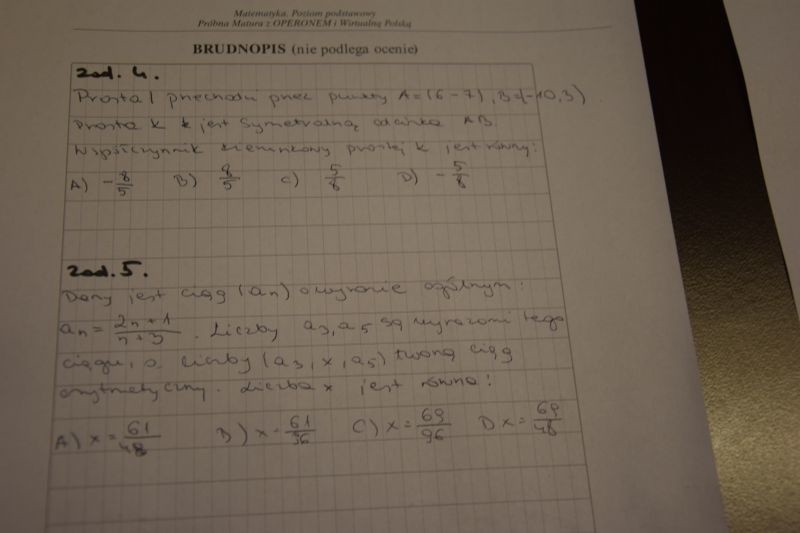 Matematyka. Poziom podstawowy
Próbna Matura z OPERONEM i Wirtualną Polską
BRUDNOPIS (nie podlega ocenie)
zad. 4.
Prosta l przechodzi przez punkty A=(6 -7), B=(-10,3)
prosta k jest symetralną odcinka AB.
Współczynnik kierunkowy prostej k jest równy:
A) -8/5 B) 8/5 C) 5/8 D) -5/8
zad. 5.
Dany jest ciąg (an) o wyrazie ogólnym:
an = 2n+1/n+3. Liczby a3, a5 są wyrazami tego
ciągu, a liczby (a3, x, a5) tworzą ciąg
arytmetyczny. Liczba x jest równa:
A) x = 61/48 B) x = 61/96 C) x = 69/96 D x = 69/48